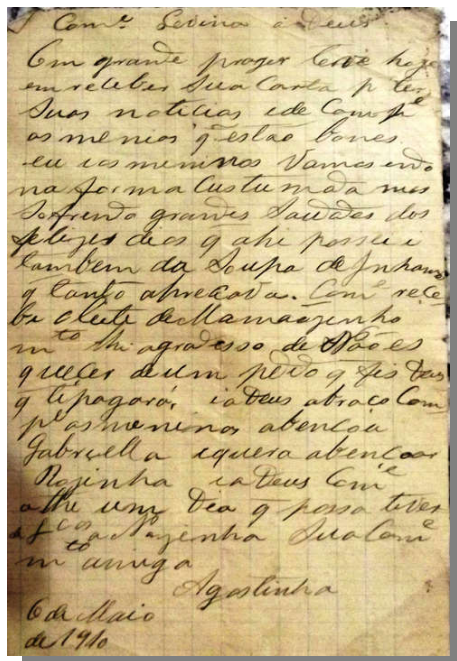 Com.e Levina a Deus.
Um grande prazer tive hoje
em receber sua carta p ter
suas noticias e de Comp.e
as menios q estão bones
eu ios meninos vamos indo
na forma custumada mas
sofrendo grandes saudades dos
felizes dias q ahi passei e
tambem da soupa de Inhame
q tanto apreciava. Com.e rece
bi o leite de Mamaozinho
m.to lhi agradesso de não es
quecer de um pedo q fis Deus
q ti pagará, i a Deus abraço Com
p.e as meninos abençoa
Gabriella i quera abencoar
Rozinha i a Deus Com.e
athe um dia q possa ti ver
a Nazinha Sua Com.e
m.to amiga
Agostinha
6 de Maio
de 1910